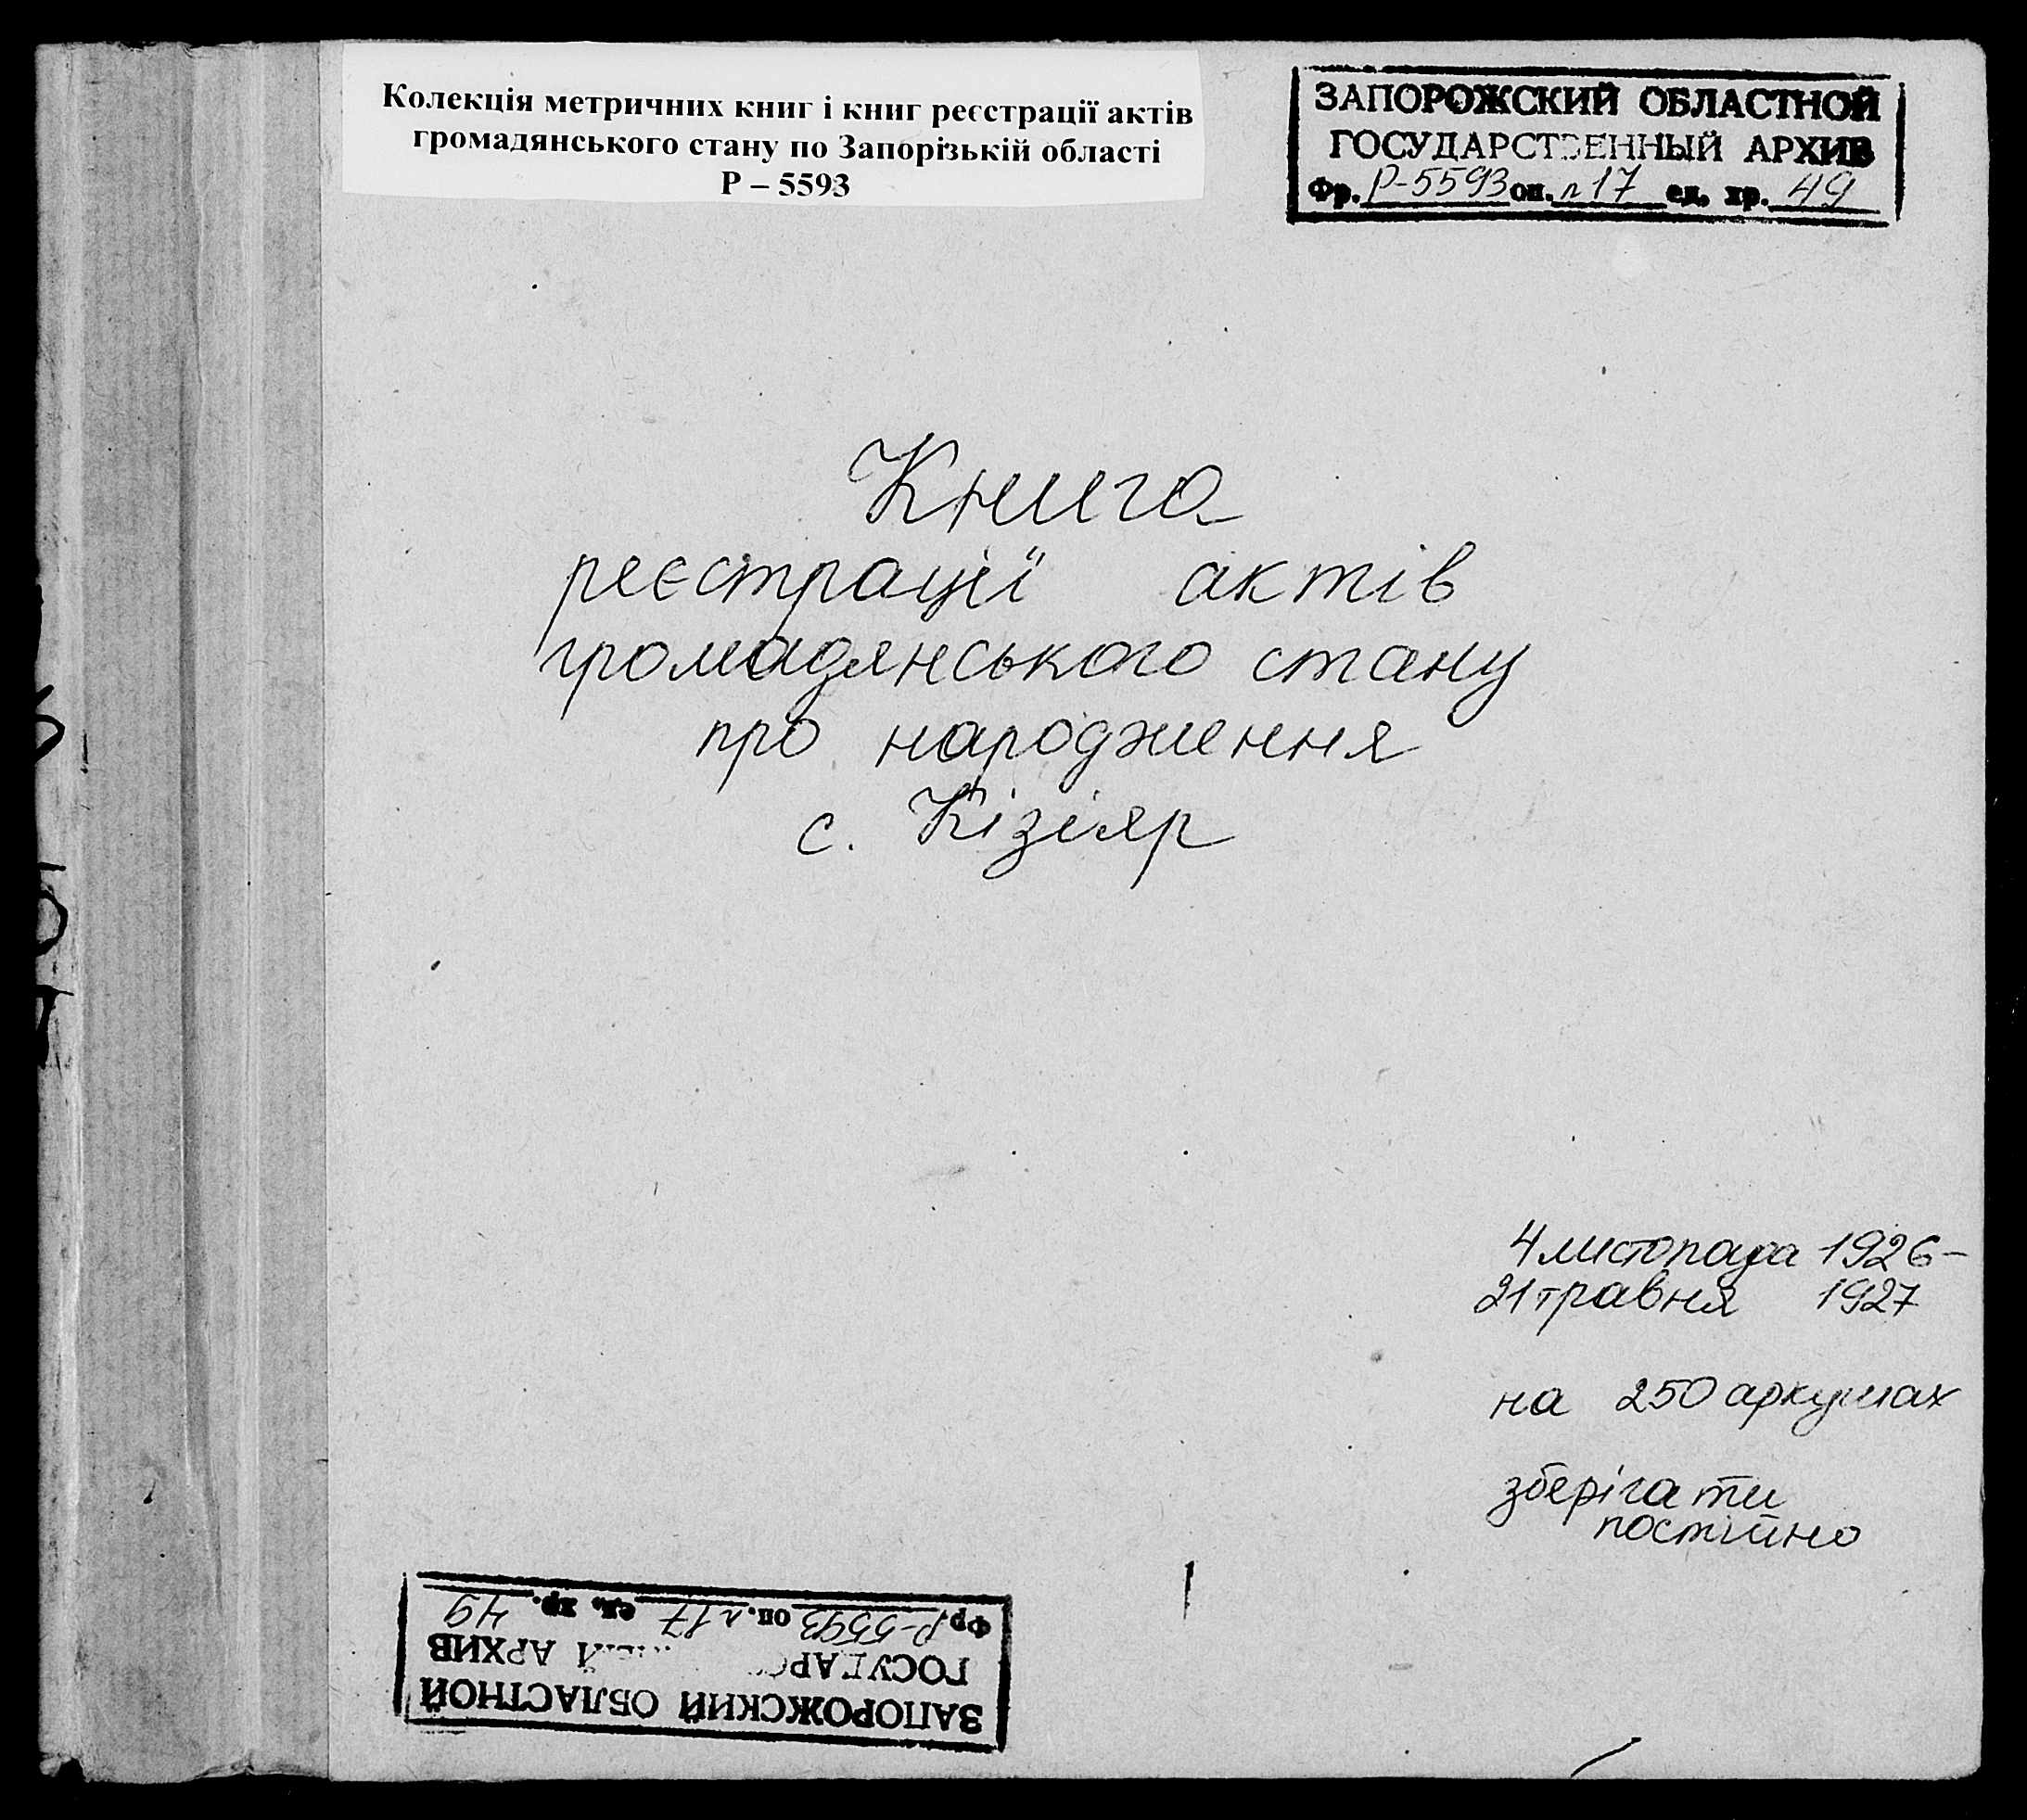 Колекція метричних книг і книг реєстрації актів
громадянського стану по Запорізькій області
Р – 5593
ЗАПОРОЖСКИЙ ОБЛАСТНОЙ
ГОСУДАРСТВЕННЫЙ АРХИВ
Фр. Р-5593 оп. л17 ед. хр. 49
Книга
реєстрації актів
громадянського стану
про народження
с. Кізіяр
4 листопада 1926 –
21 травня 1927
на 250 аркушах
зберігати
постійно
ЗАПОРОЖСКИЙ ОБЛАСТНОЙ
ГОСУДАРС АРХИВ
Фр Р-5593 оп. л17 ед. хр. 49